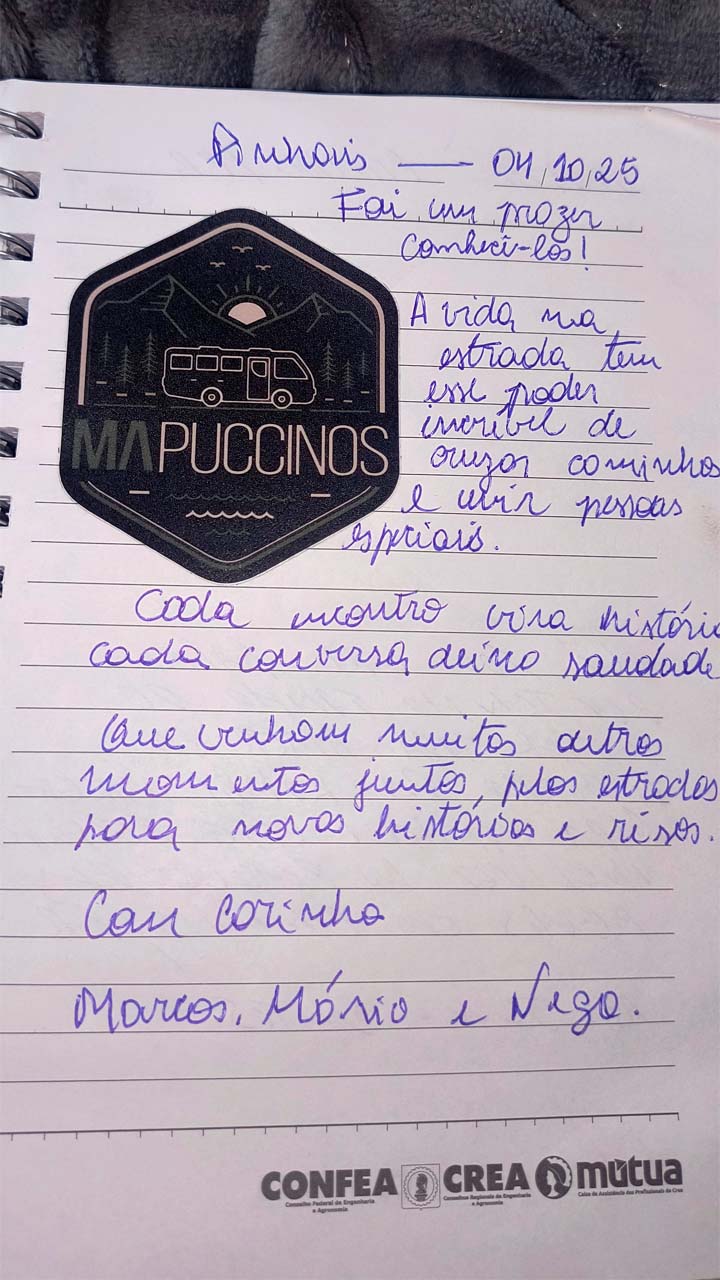 Pinhais — 04,10,25
Foi um prazer
conhecê-los!
A vida na
estrada tem
esse poder
incrível de
cruzar caminhos
e unir pessoas
especiais.
MAPUCCINOS
Cada encontro vira história
cada conversa deixa saudade
Que venham muitos outros
momentos juntos, pelas estradas
para novas histórias e risos.
Com carinho
Marcos, Mário e Nega.
CONFEA CREA mútua
Conselho Federal de Engenharia e Agronomia
Conselhos Regionais de Engenharia e Agronomia
Caixa de Assistência dos Profissionais do Crea